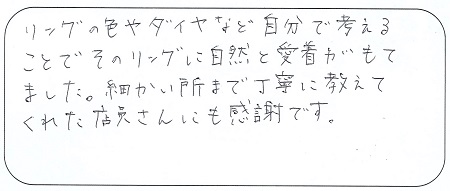 リングの色やダイヤなど自分で考える
ことでそのリングに自然と愛着がもて
ました。細かい所まで丁寧に教えて
くれた店員さんにも感謝です。